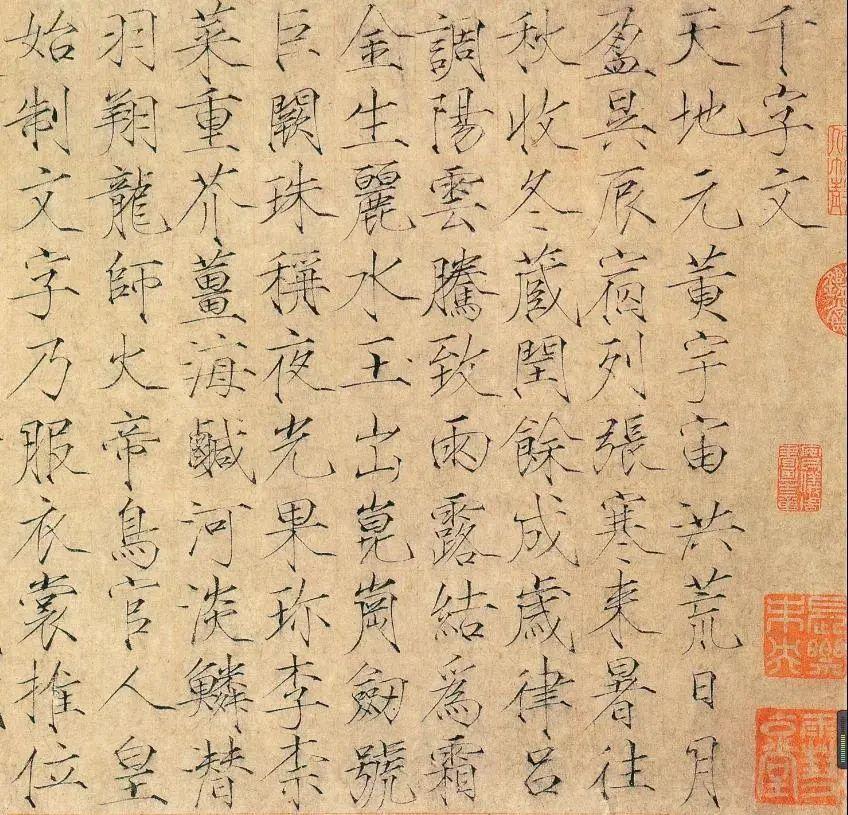 千字文
天地元黃宇宙洪荒日月
盈昃辰宿列張寒来暑往
秋收冬蔵閏餘成歲律呂
調陽雲騰致雨露結爲霜
金生麗水玉出崑崗劒號
巨闕珠稱夜光果珎李柰
菜重芥薑海鹹河淡鱗潜
羽翔龍師火帝鳥官人皇
始制文字乃服衣裳推位